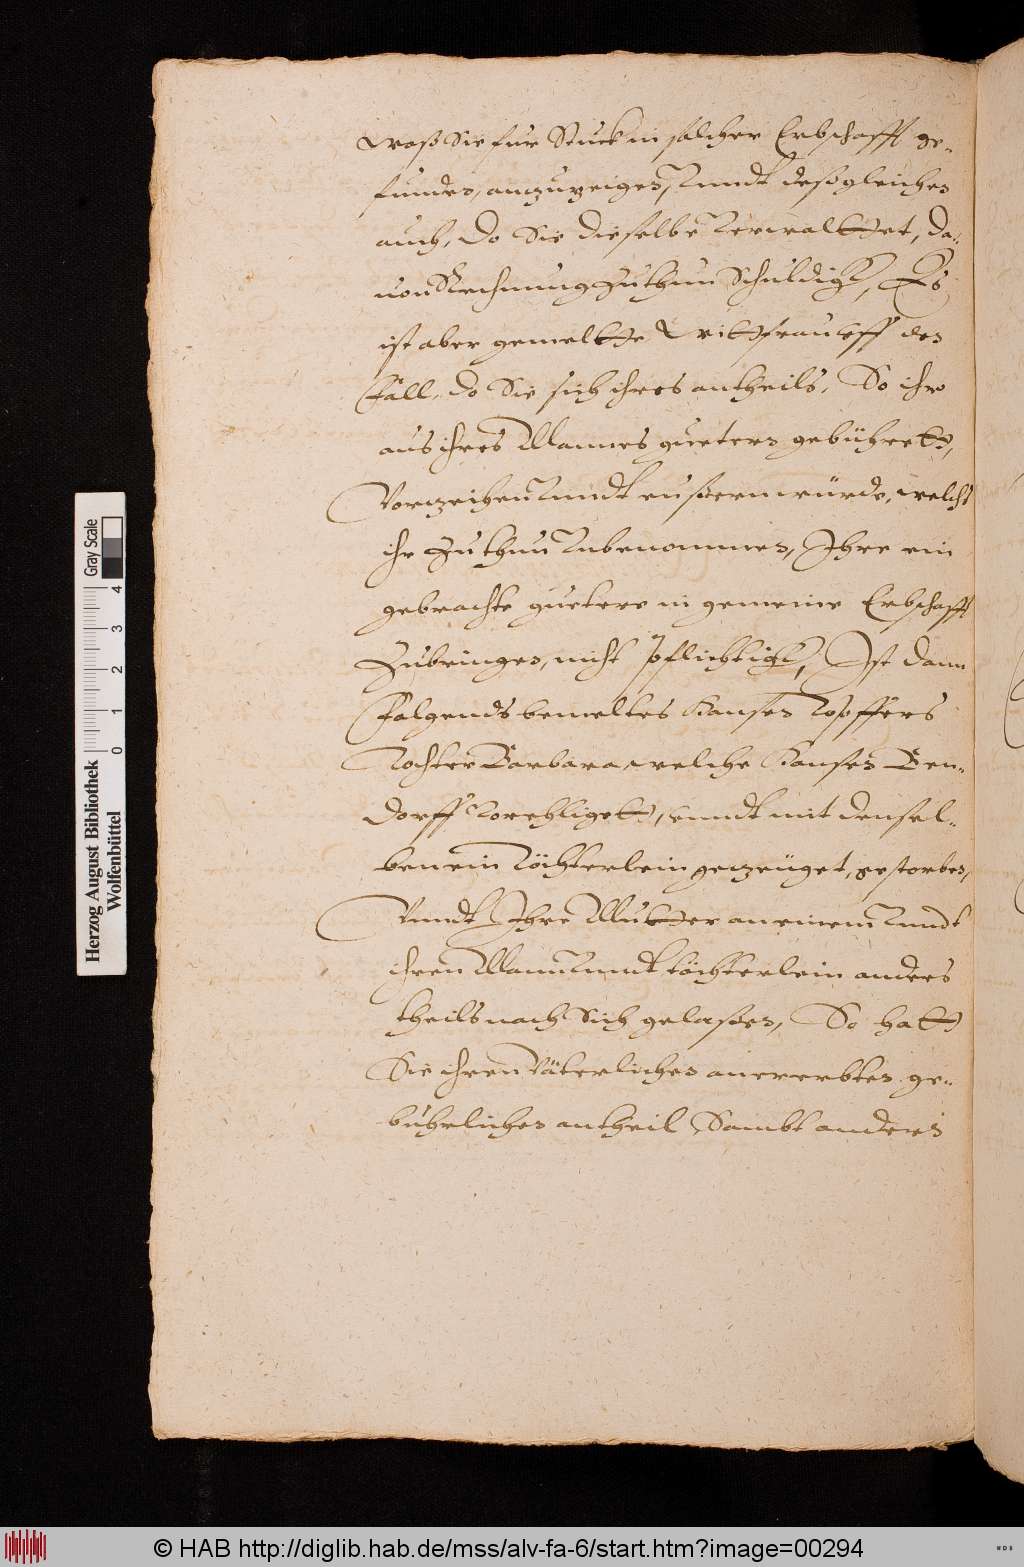 was Sie fur Stuck in solcher Erbschafft ge-
funden, anzuzeigen, vnndt deßgleichen
auch, do Sie dieselbe verwalttet, da-
uon Rechnung zuthun Schuldigk, Es
ist aber gemeltte Wittfrau vff den
fall, do Sie sich ihres antheils, So ihr
aus ihres Mannes guetern gebührett,
Vorzeihen vnndt eußern würde, welchs
ihr zuthun vnbenommen, Ihre ein
gebrachte guetere in gemeine Erbschafft
Zubringen, nicht pflichtigk, Ist dann
folgends bemeltes Hansen Töpffers
Tochter Barbara welche Hansen Ben-
dorff vorehligett, vnndt mit densel-
ben ein Töchterlein gezeuget, gestorben,
Vnndt Ihre Mutter an einem vnndt
ihren Mann vnndt töchterlein anders
theils nach Sich gelaßen, So hatt
Sie ihren Väterlichen anererbten ge-
buhrlichen antheil Sambt andern
Herzog August Bibliothek
Wolfenbüttel
0 1 2 3 4
Gray Scale
© HAB http://diglib.hab.de/mss/alv-fa-6/start.htm?image=00294